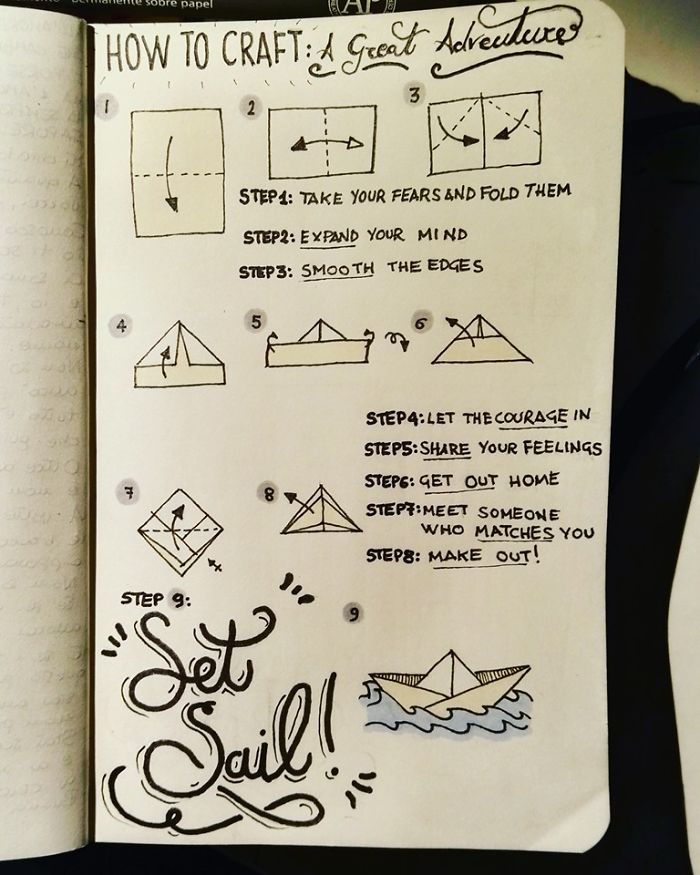 permanente sobre papel
HOW TO CRAFT: A Great Adventure
1
2
3
STEP1: TAKE YOUR FEARS AND FOLD THEM
STEP2: EXPAND YOUR MIND
STEP3: SMOOTH THE EDGES
4
5
6
STEP4: LET THE COURAGE IN
STEP5: SHARE YOUR FEELINGS
STEP6: GET OUT HOME
STEP7: MEET SOMEONE
WHO MATCHES YOU
STEP8: MAKE OUT!
7
8
STEP 9:
9
Set
Sail!